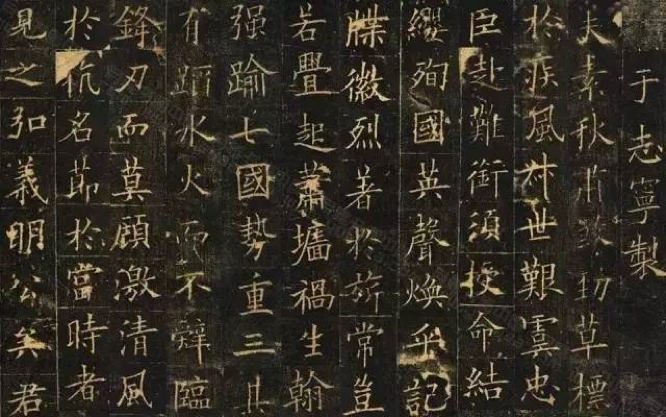 于志寧製
夫素秋肅煞勁草標
於疾風叔世艱虞忠
臣赴難銜須授命結
纓殉國英聲煥乎記
牒徽烈著於旂常豈
若舋起蕭墻禍生翰
強踰七國勢重三其
有蹈水火而不辭臨
鋒刃而莫顧激清風
於抗名節於當時者
見之弘義明公矣君